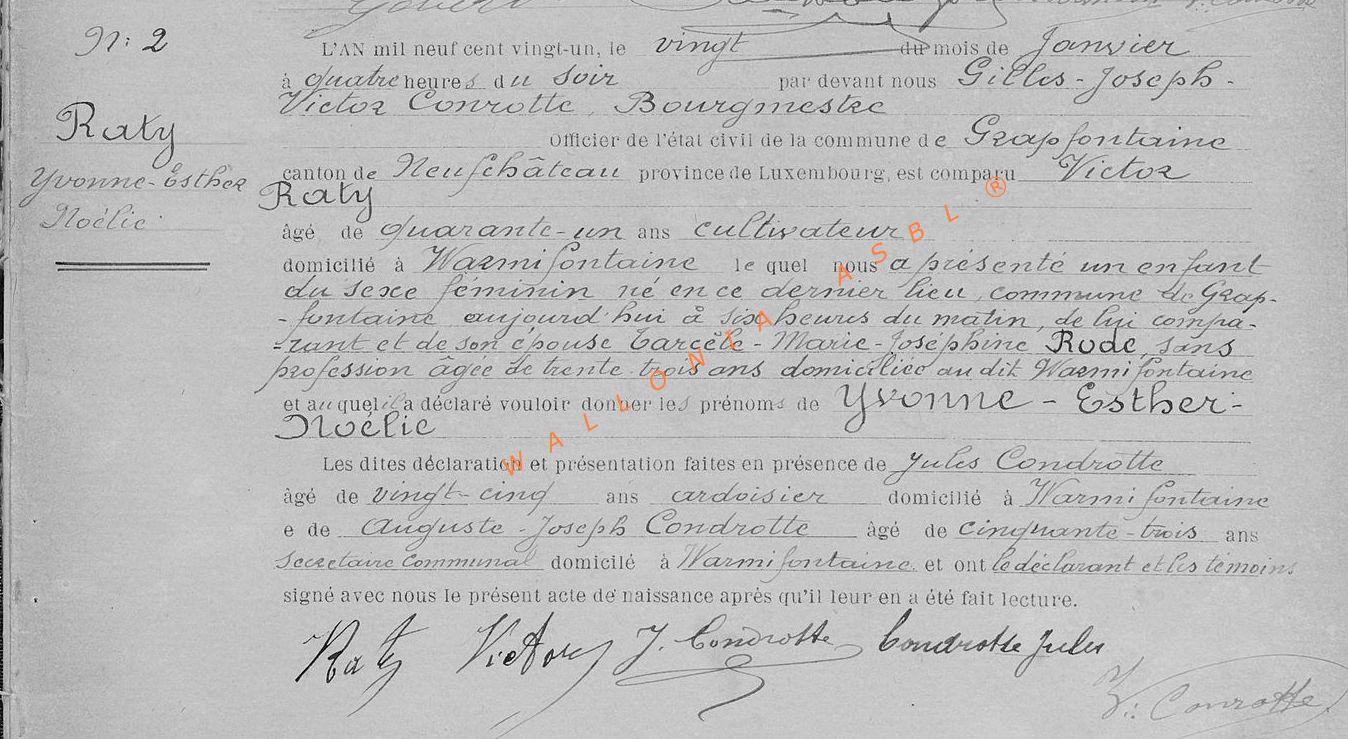 N: 2
L'AN mil neuf cent vingt-un, le vingt du mois de Janvier
à quatre heures du soir par devant nous Gilles-Joseph-
Victor Conrotte, Bourgmestre
Raty
Officier de l'état civil de la commune de Grapfontaine
Yvonne-Esther
canton de Neufchâteau province de Luxembourg, est comparu Victor
Raty
Noélie
âgé de quarante-un ans cultivateur
domicilié à Warmifontaine lequel nous a présenté un enfant
du sexe féminin né en ce dernier lieu, commune de Grap-
-fontaine aujourd'hui à six heures du matin, de lui compa-
-rant et de son épouse Marie-Joséphine Rode, sans
profession âgée de trente-trois ans domiciliée au dit Warmifontaine
et auquel il a déclaré vouloir donner les prénoms de Yvonne-Esther-
Noélie
Les dites déclaration et présentation faites en présence de Jules Condrotte
âgé de vingt-cinq ans ardoisier domicilié à Warmifontaine
e de Auguste-Joseph Condrotte âgé de cinquante-trois ans
secretaire communal domicilé à Warmifontaine et ont le déclarant et les témoins
signé avec nous le présent acte de naissance après qu'il leur en a été fait lecture.
Raty Victor J. Condrotte Condrotte Jules
V. Conrotte
WALLONIA ASBL ®